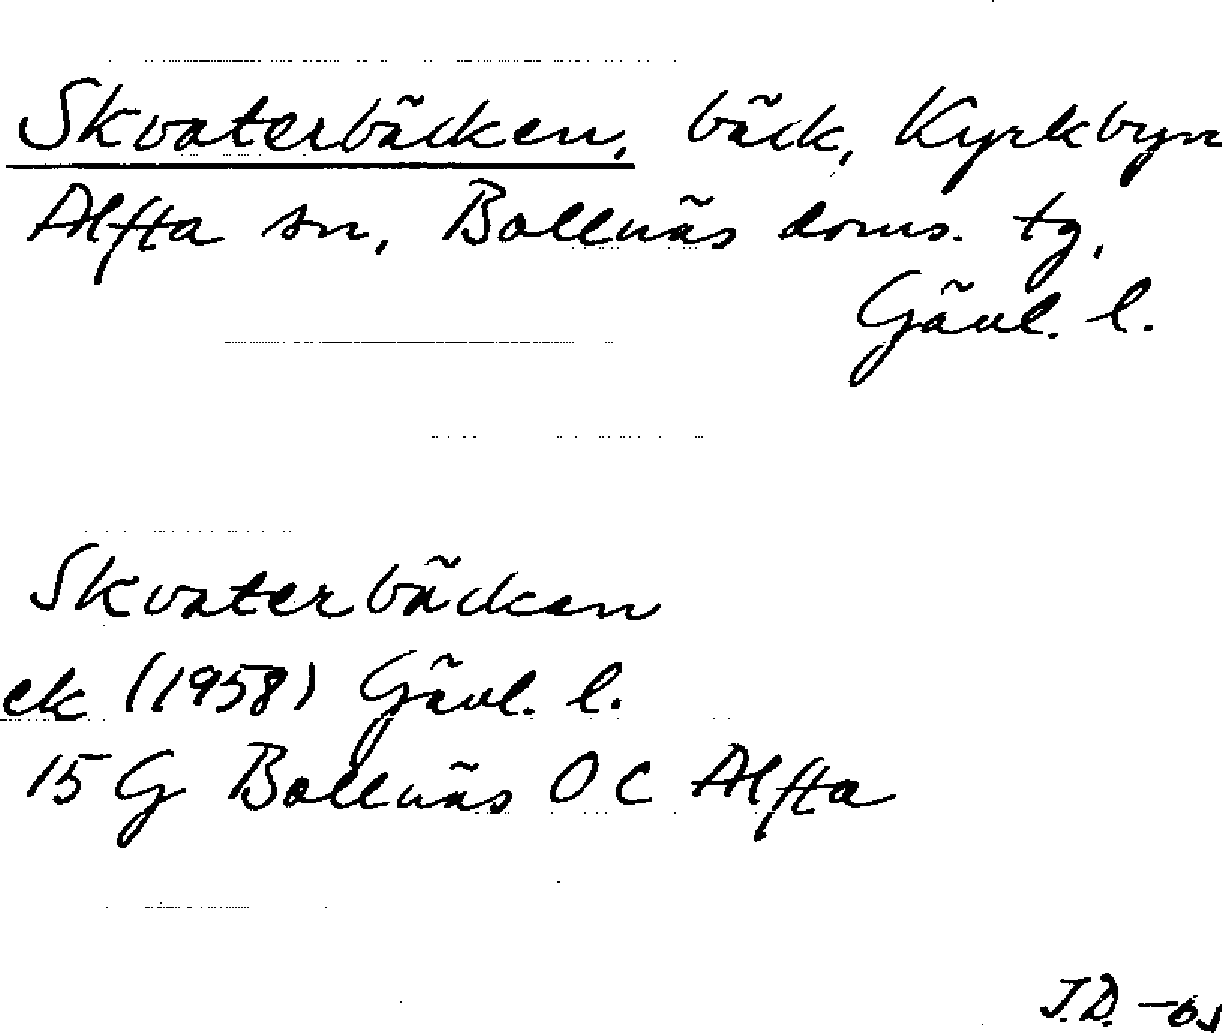 Skvaterbäcken, bäck, Kyrkbyn
Alfta sn, Bollnäs doms. tg,
Gävl. l.
Skvaterbäcken
ek (1958) Gävl. l.
15 G Bollnäs O C Alfta
J.D.